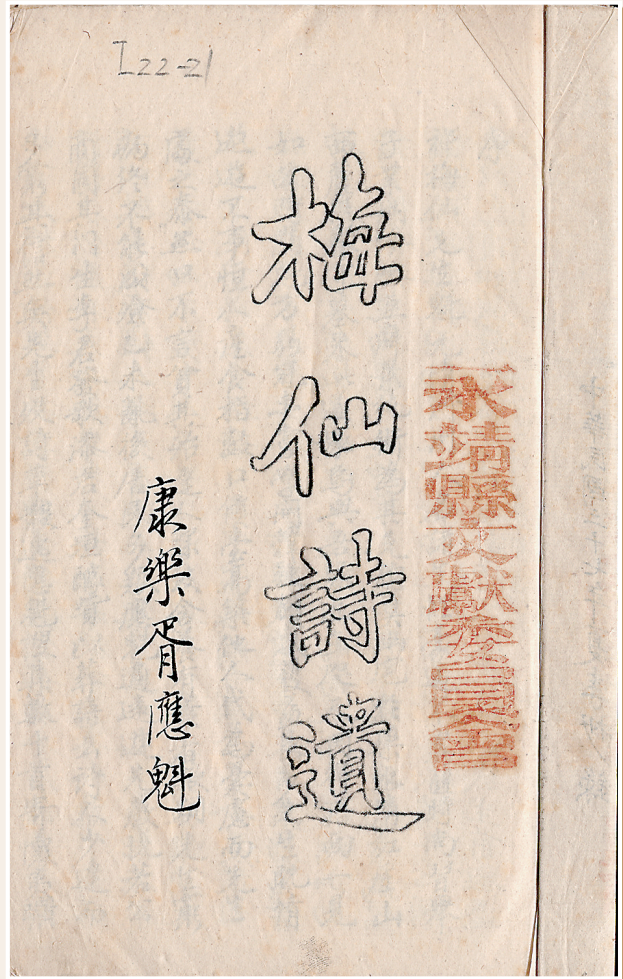 I22-21
永靖縣文獻委員會
梅仙詩遺
康樂胥應魁